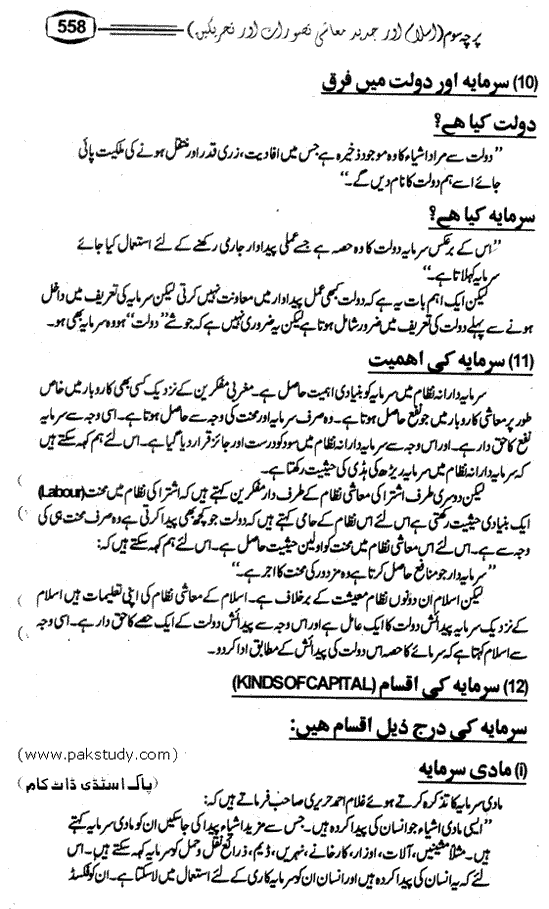 پرچہ سوم (اسلام اور جدید معاشی تصورات اور تحریکیں)
558
(10) سرمایہ اور دولت میں فرق
دولت کیا ھے؟
”دولت سے مراد اشیاء کا وہ موجود ذخیرہ ہے جس میں افادیت، زری قدر اور منتقل ہونے کی ملکیت پائی
جائے اسے ہم دولت کا نام دیں گے۔“
سرمایہ کیا ھے؟
”اس کے برعکس سرمایہ دولت کا وہ حصہ ہے جسے عملی پیداوار جاری رکھنے کے لئے استعمال کیا جائے
سرمایہ کہلاتا ہے۔“
لیکن ایک اہم بات یہ ہے کہ دولت کبھی عمل پیداوار میں معاونت نہیں کرتی لیکن سرمایہ کی تعریف میں داخل
ہونے سے پہلے دولت کی تعریف میں ضرور شامل ہوتا ہے لیکن یہ ضروری نہیں ہے کہ جو شے ”دولت“ ہو وہ سرمایہ بھی ہو۔
(11) سرمایہ کی اھمیت
سرمایہ دارانہ نظام میں سرمایہ کو بنیادی اہمیت حاصل ہے۔ مغربی مفکرین کے نزدیک کسی بھی کاروبار میں خاص
طور پر معاشی کاروبار میں جو نفع حاصل ہوتا ہے۔ وہ صرف سرمایہ اور محنت کی وجہ سے حاصل ہوتا ہے۔ اسی وجہ سے سرمایہ
نفع کا حق دار ہے۔ اور اس وجہ سے سرمایہ دارانہ نظام میں سود کو درست اور جائز قرار دیا گیا ہے۔ اس لئے ہم کہہ سکتے ہیں
کہ سرمایہ دارانہ نظام میں سرمایہ ریڑھ کی ہڈی کی حیثیت رکھتا ہے۔
لیکن دوسری طرف اشتراکی معاشی نظام کے طرف دار مفکرین کہتے ہیں کہ اشتراکی نظام میں محنت (Labour)
ایک بنیادی حیثیت رکھتی ہے اس لئے اس نظام کے حامی کہتے ہیں کہ دولت جو کچھ بھی پیدا کرتی ہے وہ صرف محنت ہی کی
وجہ سے ہے۔ اس لئے اس معاشی نظام میں محنت کو اولین حیثیت حاصل ہے۔ اس لئے ہم کہہ سکتے ہیں کہ:
”سرمایہ دار جو منافع حاصل کرتا ہے وہ مزدور کی محنت کا اجر ہے۔“
لیکن اسلام ان دونوں نظام معیشت کے برخلاف ہے۔ اسلام کے معاشی نظام کی اپنی تعلیمات ہیں اسلام
کے نزدیک سرمایہ پیدائش دولت کا ایک عامل ہے اور اس وجہ سے پیدائش دولت کے ایک حصے کا حق دار ہے۔ اسی وجہ
سے اسلام کہتا ہے کہ سرمائے کا حصہ اس دولت کی پیدائش کے مطابق ادا کر دو۔
(12) سرمایہ کی اقسام (KINDSOFCAPITAL)
سرمایہ کی درج ذیل اقسام ھیں:
(www.pakstudy.com)
(i) مادی سرمایہ
(پاک اسٹڈی ڈاٹ کام)
مادی سرمایہ کا تذکرہ کرتے ہوئے غلام احمد حریری صاحب فرماتے ہیں کہ:
”ایسی مادی اشیاء جو انسان کی پیدا کردہ ہیں۔ جس سے مزید اشیاء پیدا کی جاسکیں ان کو مادی سرمایہ کہتے
ہیں۔ مثلاً مشینیں، آلات، اوزار، کارخانے، نہریں، ڈیم، ذرائع نقل و حمل کو سرمایہ کہہ سکتے ہیں۔ اس
لئے کہ یہ انسان کی پیدا کردہ ہیں اور انسان ان کو سرمایہ کاری کے لئے استعمال میں لا سکتا ہے۔ ان کو فکسڈ